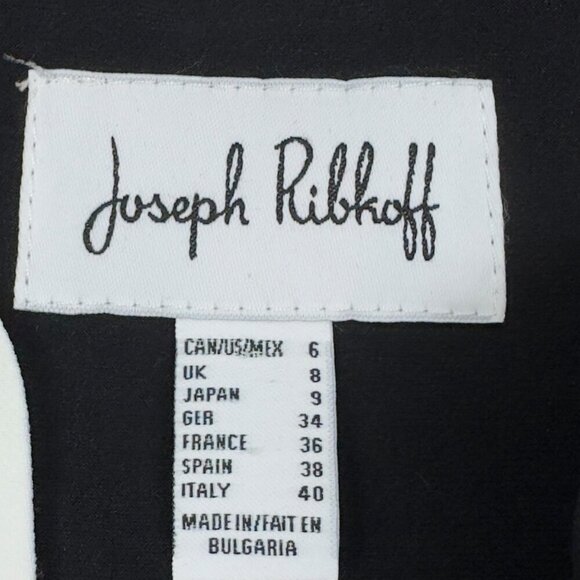 Joseph Ribkoff
CAN/US/MEX 6
UK 8
JAPAN 9
GER 34
FRANCE 36
SPAIN 38
ITALY 40
MADE IN/FAIT EN
BULGARIA